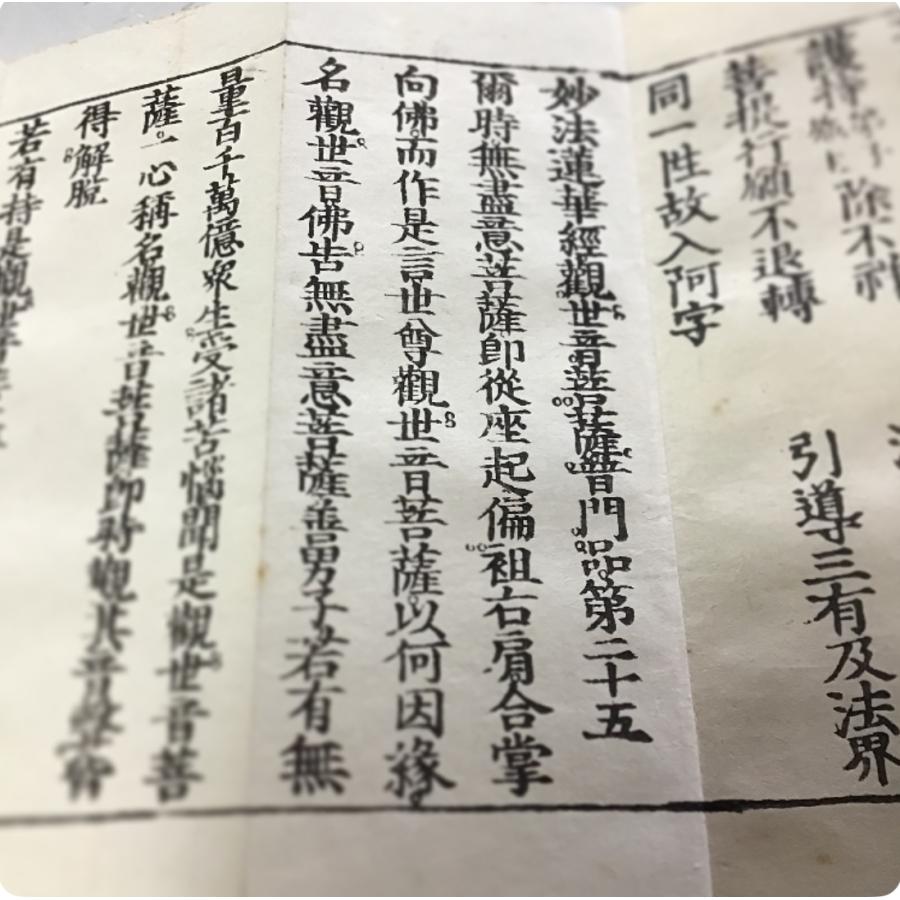 護持
除不祥
菩提行願不退轉
引導三有及法界
同一性故入阿字
妙法蓮華經觀世音菩薩普門品第二十五
爾時無盡意菩薩卽從座起偏袒右肩合掌
向佛而作是言世尊觀世音菩薩以何因緣
名觀世音佛吿無盡意菩薩善男子若有無
量百千萬億衆生受諸苦惱聞是觀世音菩
薩一心稱名觀世音菩薩卽時觀其音聲皆
得解脫
若有持是觀世音菩